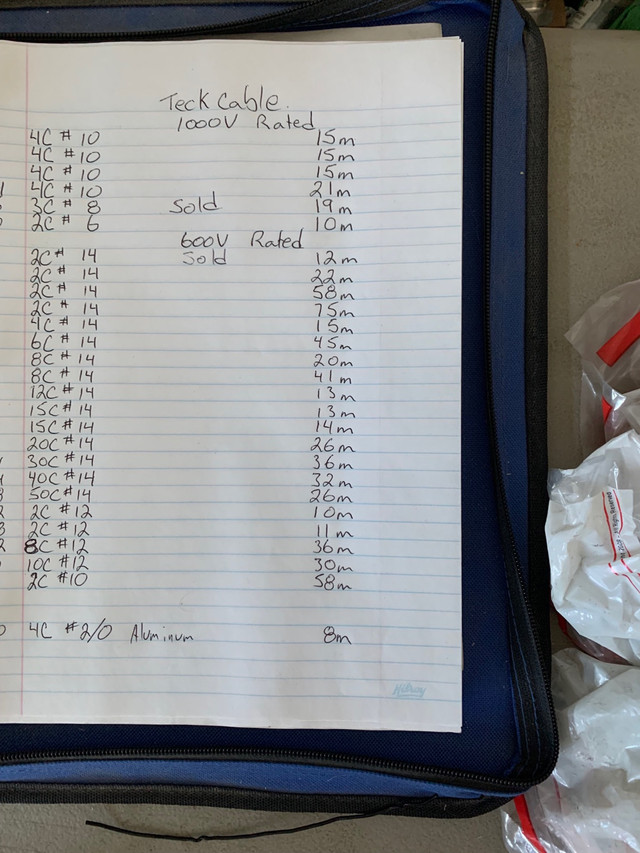 Teck Cable.
1000V Rated
4C # 10 15m
4C # 10 15m
4C # 10 15m
4C # 10 21m
3C # 8 Sold 19m
2C # 6 10m
600V Rated
2C # 14 Sold 12m
2C # 14 22m
2C # 14 58m
2C # 14 75m
4C # 14 15m
6C # 14 45m
8C # 14 20m
8C # 14 41m
12C # 14 13m
15C # 14 13m
15C # 14 14m
20C # 14 26m
30C # 14 36m
40C # 14 32m
50C # 14 26m
2C # 12 10m
2C # 12 11m
8C # 12 36m
10C # 12 30m
2C # 10 58m
4C # 2/0 Aluminum 8m
Hilroy